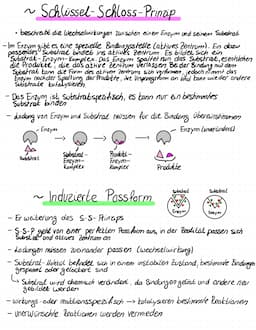 ~ Schlüssel-Schloss-Prinzip
- beschreibt die Wechselwirkungen zwischen einem Enzym und seinem Substrat
- Im Enzym gibt es eine spezielle Bindungsstelle (aktives Zentrum). Ein dazu
passendes Substrat bindet ins aktive Zentrum. Es bildet sich ein
Substrat-Enzym-Komplex. Das Enzym spaltet nun das Substrat, es entstehen
die Produkte, die das aktive Zentrum verlassen. Bei der Bindung mit dem
Substrat kann die Form des aktiven Zentrums sich verformen, jedoch nimmt das
Enzym nach der Spaltung der Produkte, die Ursprungsform an und kann wieder andere
Substrate katalysieren.
- Das Enzym ist substratspezifisch, es kann nur ein bestimmtes
Substrat binden
- Ladung von Enzym und Substrat müssen für die Bindung übereinstimmen
Enzym
Enzym (unverändert)
Substrat
Substrat-
Enzym-
komplex
Produkt-
Enzym-
komplex
Produkte
~ Induzierte Passform
Substrat
Enzym
Substrat
Enzym
- Erweiterung des S-S-Prinzips
- S-S-P geht von einer perfekten Passform aus, in der Realität passen sich
Substrat und aktives Zentrum an
- Ladungen müssen zueinander passen (Wechselwirkung)
- Substrat befindet sich in einem instabilen Zustand, bestimmte Bindungen
gespannt oder gelockert sind
↳ Substrat wird chemisch verändert, da Bindungen gelöst und andere neu
gebildet werden
- wirkungs- oder reaktionsspezifisch → katalysieren bestimmte Reaktionen
- unerwünschte Reaktionen werden vermieden